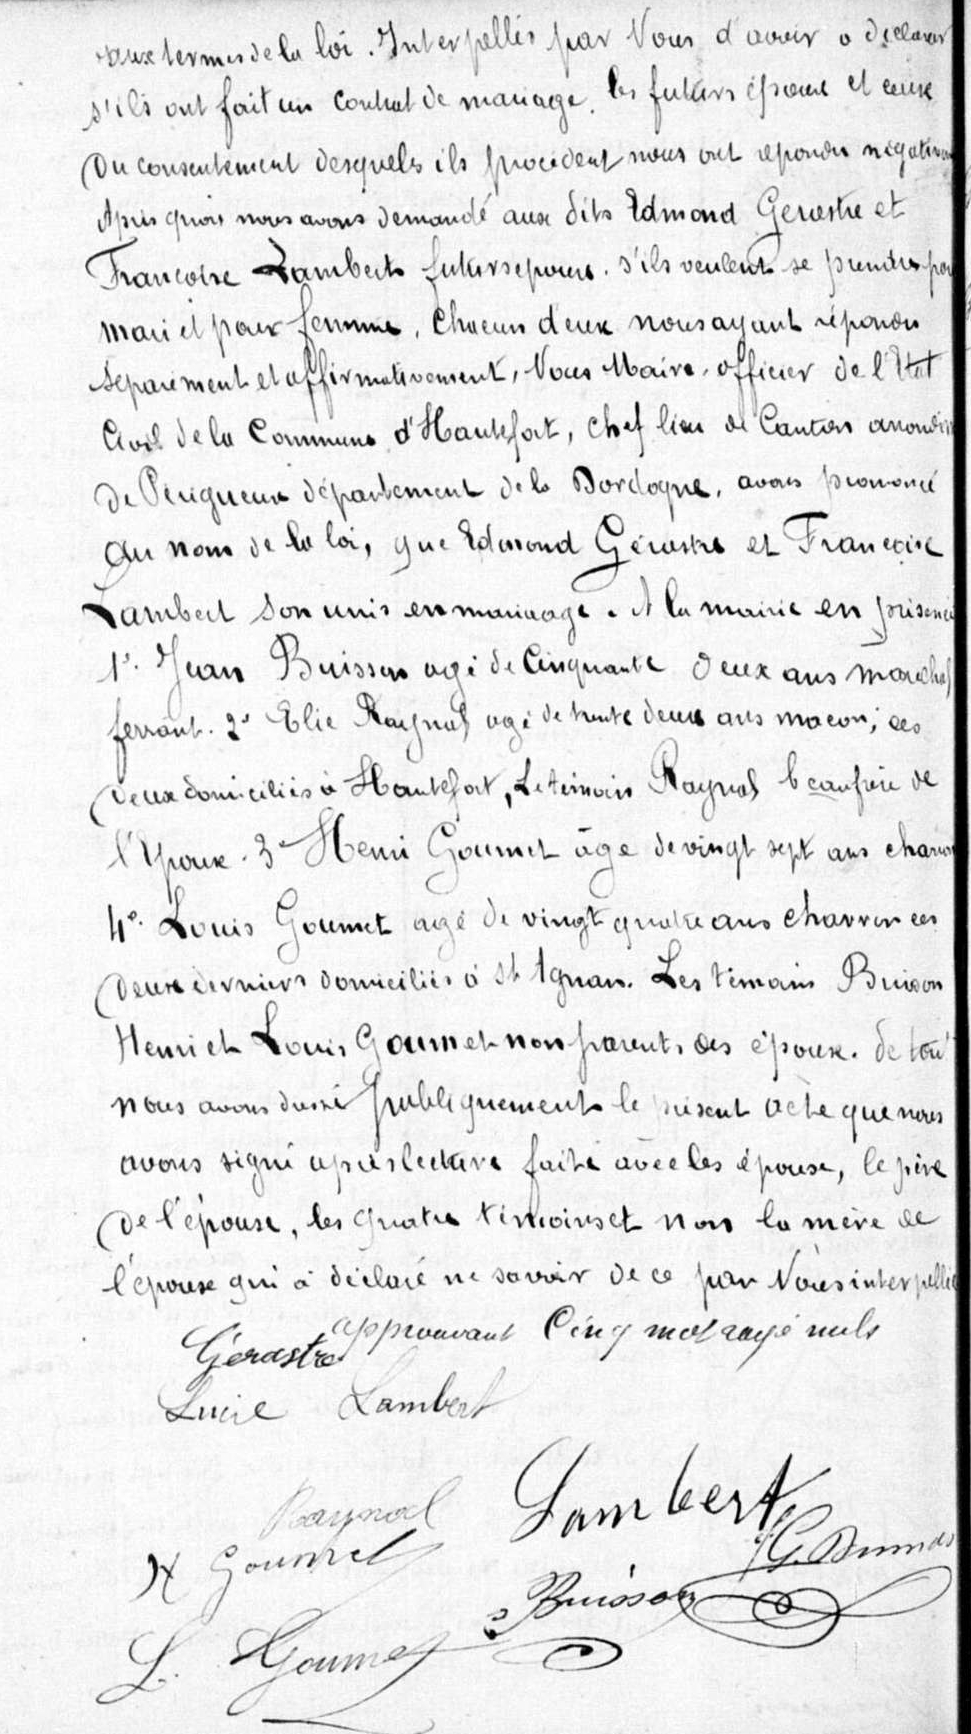 aux termes de la loi. Interpellés par Nous d'avoir a declarer
s'ils ont fait un contrat de mariage. les futurs époux et ceux
du consentement desquels ils procedent nous ont repondu négativem
Après quoi nous avons demandé aux dits Edmond Gérastre et
Francoise Lambert futurs epoux. s'ils veulent se prendre pou
mari et pour femme, Chacun d'eux nous ayant répondu
séparément et affirmativement, Nous Maire, officier de l'Etat
Civil de la Commune d'Hautefort, chef lieu de Canton arrondis
de Périgueux département de la Dordogne, avons prononcé
au nom de la loi, que Edmond Gérastre et Françoise
Lambert son unis en mariaage. A la mairie en présence
1º. Jean Buisson agé de Cinquante deux ans maréchal
ferrant. 2º Elie Raynal agé de trente deux ans macon; ces
deux domiciliés à Hautefort, Le témoin Raynal beaufrère de
l'Epoux. 3º Henri Goumet âge de vingt sept ans charron
4º. Louis Goumet agé de vingt quatre ans charron ces
deux derniers domiciliés à St Agnan. Les témoins Buisson
Henri et Louis Goumet non parents des époux. de tout
nous avons dressé publiquement le présent acte que nous
avons signé après lecture faite avec les époux, le père
de l'épouse, les quatre témoins et non la mère de
l'épouse qui à déclaré ne savoir de ce par Nous interpellée
approuvant Cinq mot rayé nuls
Gérastre
Lucie Lambert
Lambert
Raynal
H Goumet
G. Dumas
Buisson
L. Goumet